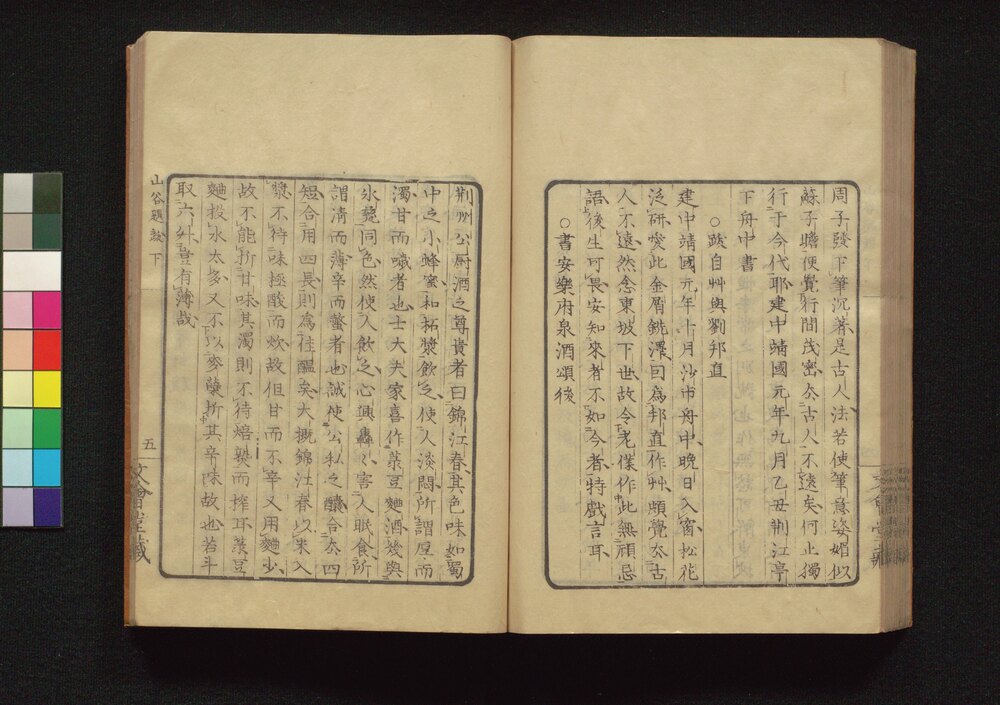 周子發下筆沉著是古人法若使筆意姿媚似
蘇子瞻便覺行間茂密去古人不遠矣何止獨
行于今代耶建中靖國元年九月乙丑荆江亭
下舟中書
○跋自艸與劉邦直
建中靖國元年十月沙市舟中晚日入窗松花
泛研愛此金屑銑澤回為邦直作艸頗覺去古
人不遠然念東坡下世故令老僕作此無顧忌
語後生可畏安知來者不如今者特戲言耳
○書安樂府泉酒頌後
荆州公厨酒之尊貴者曰錦江春其色味如蜀
中之小蜂蜜和柘漿飲之使人淡悶所謂厚而
濁甘而噦者也士大夫家喜作菉豆麯酒幾與
氷甕同色然使人飲之心興轟轟害人眠食所
謂清而薄辛而螫者也誠使公私之釀合去四
短合用四長則為佳醞矣大概錦江春以米入
漿不待味極酸而炊故但甘而不辛又用麯少
故不能折甘味其濁則不待焙熟而搾耳菉豆
麯投水太多又不以麥蘖折其辛味故也若斗
取六升豈有薄哉
山谷題跋 下
五
文會堂藏